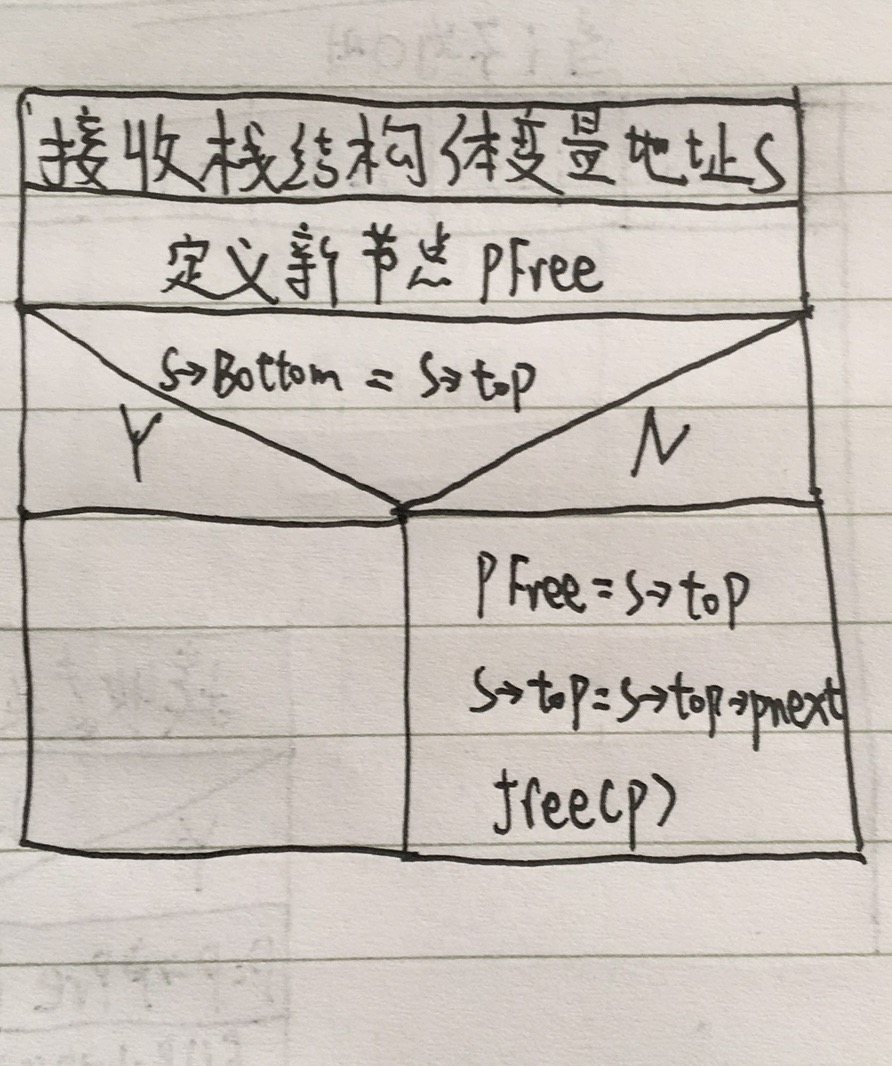 接收栈结构体变量地址S
定义新节点 pFree
S→Bottom = S→top
Y
N
pFree=S→top
S→top=S→top→pnext
free(p)